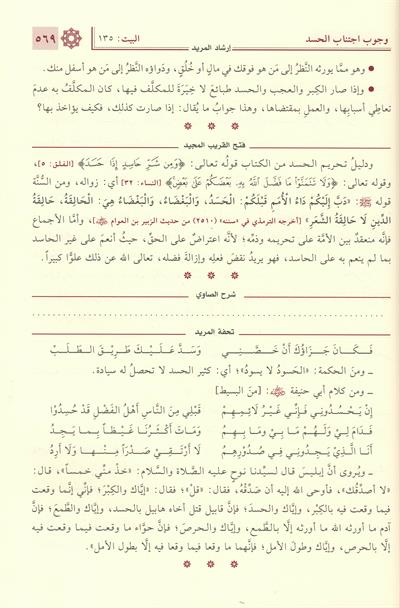 وجوب اجتناب الحسد
البيت: ١٣٥
٥٦٩
إرشاد المريد
● وهو ممَّا يورثه النَّظرُ إلى مَن هو فوقك في مالٍ أو خُلُقٍ، ودَواؤه النَّظر إلى مَن هو أسفل منك.
● وإذا صار الكِبر والعجب والحسد طبائعَ لا خِيَرَةَ للمكلَّف فيها، كان المكلَّف به عدمَ
تعاطي أسبابِها، والعملِ بمقتضاها، وهذا جوابُ ما يُقال: إذا صارت كذلك، فكيف يؤاخذ بها؟
* * *
فتح القريب المجيد
ودليلُ تحريم الحسد من الكتاب قولُه تعالى: ﴿وَمِن شَرِّ حَاسِدٍ إِذَا حَسَدَ﴾ [الفلق: ٥]،
وقوله تعالى: ﴿وَلَا تَتَمَنَّوْا مَا فَضَّلَ اللَّهُ بِهِ بَعْضَكُمْ عَلَى بَعْضٍ﴾ [النساء: ٣٢] أي: زواله، ومن السُّنَّة
قوله ﷺ: «دَبَّ إِلَيْكُمْ دَاءُ الأُمَمِ قَبْلَكُمْ: الْحَسَدُ، وَالْبَغْضَاءُ، وَالْبَغْضَاءُ هِيَ: الْحَالِقَةُ، حَالِقَةُ
الدِّينِ لَا حَالِقَةُ الشَّعَرِ» [أخرجه الترمذي في «سننه» (٢٥١٠) من حديث الزبير بن العوام ﷺ]، وأمَّا الأجماع
فإنَّه منعقدٌ بين الأمَّة على تحريمه وذمِّه؛ لأنَّه اعتراضٌ على الحقِّ، حيثُ أنعمَ على غيرِ الحاسد
بما لم ينعم به على الحاسد، فهو يريدُ نقضَ فعلِهِ وإزالةَ فضله، تعالى الله عن ذلك علوًّا كبيراً.
شرح الصاوي
تحفة المريد
فَكَـانَ جَـزَاؤُكَ أَنْ خَصَّـنِي وَسَدَّ عَلَـيْكَ طَرِيقَ الطَّلَبْ
ـ ومن الحكمة: «الحَسُودُ لا يسودُ»؛ أي: كثير الحسد لا تحصل له سيادة.
ـ ومن كلام أبي حنيفة ﷺ: [من البسيط]
إِنْ يَحْسُدُونِي فَإِنِّي غَيْرُ لَائِمِهِمْ قَبْلِي مِنَ النَّاسِ أَهْلُ الفَضْلِ قَدْ حُسِدُوا
فَدَامَ لِي وَلَهُمْ مَا بِي وَمَا بِهِمْ وَمَاتَ أَكْثَرُنَا غَيْظاً بِمَا يَجِدُ
أَنَا الَّذِي يَجِدُونِي فِي صُدُورِهِمُ لَا أَرْتَقِي صَدْراً مِنْهَا وَلَا أَرِدُ
ـ ويُروى أنَّ إبليسَ قال لسيِّدنا نوحٍ عليه الصَّلاة والسَّلام: «خذ منِّي خمساً»، قال:
«لا أصدِّقُك»، فأوحى الله إليه أن صَدِّقْهُ، فقال: «قلْ»؛ فقال: «إيَّاك والكِبْرَ؛ فإنِّي إنَّما وقعت
فيما وقعت فيه بالكِبْر، وإيَّاك والحسدَ؛ فإنَّ قابيل قتل أخاه هابيل بالحسد، وإيَّاك والطَّمعَ؛ فإنَّ
آدم ما أورثه الله ما أورثه إلَّا بالطَّمع، وإيَّاك والحرصَ؛ فإنَّ حوَّاء ما وقعت فيما وقعت فيه
إلَّا بالحرص، وإيَّاك وطولَ الأمل؛ فإنَّهما ما وقعا فيما وقعا فيه إلَّا بطول الأمل».
* * *